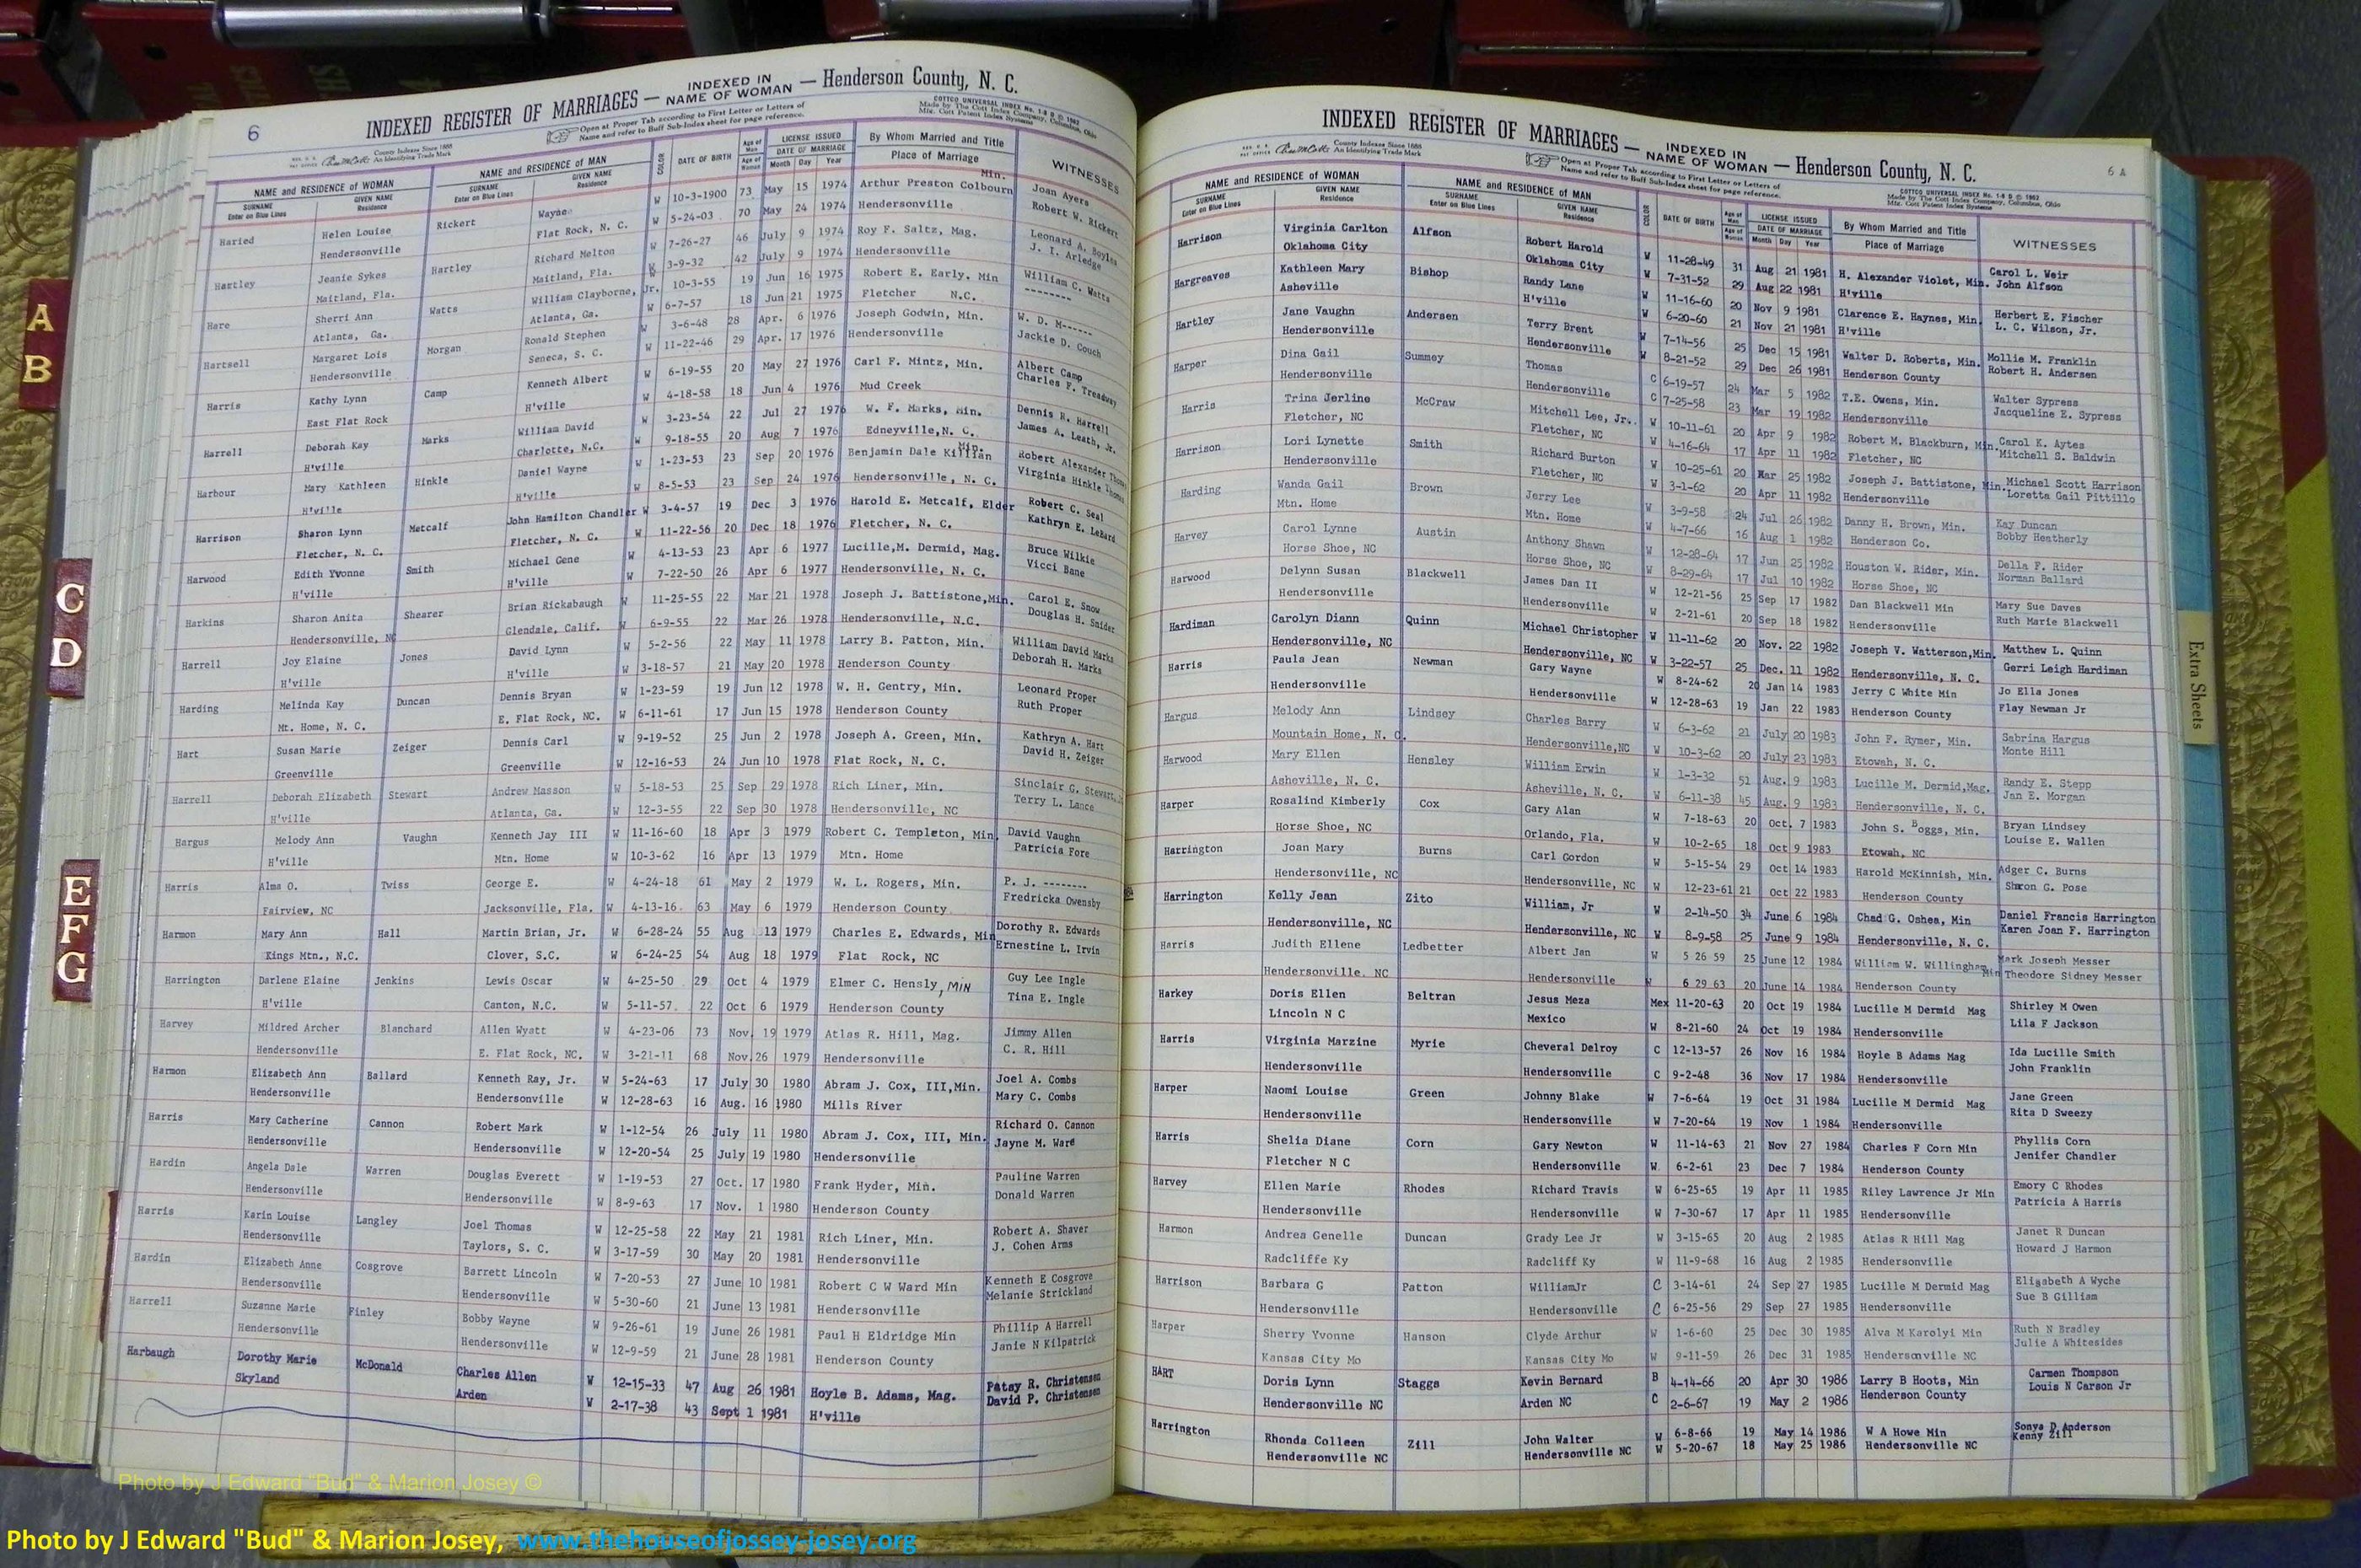 A
B
C
D
E
F
G
6
INDEXED REGISTER OF MARRIAGES — INDEXED IN NAME OF WOMAN — Henderson County, N. C.
Open at Proper Tab according to First Letter or Letters of
Name and refer to Buff Sub-Index sheet for page reference.
County Indexes Since 1888
An Identifying Trade Mark
COTTCO UNIVERSAL INDEX No. 1-8 B © 1962
Made by The Cott Index Company, Columbus, Ohio
Mfs. Cott Patent Index Systems
NAME and RESIDENCE OF WOMAN NAME and RESIDENCE OF MAN COLOR DATE OF BIRTH Age of Man LICENSE ISSUED By Whom Married and Title WITNESSES
SURNAME GIVEN NAME SURNAME GIVEN NAME Age of Woman DATE OF MARRIAGE Place of Marriage
Enter on Blue Lines Residence Enter on Blue Lines Residence Month Day Year
Haried Helen Louise Rickert Wayne W 10-3-1900 73 May 15 1974 Arthur Preston Colbourn Min. Joan Ayers
Hendersonville Flat Rock, N. C. W 5-24-03 70 May 24 1974 Hendersonville Robert W. Rickert
Hartley Jeanie Sykes Hartley Richard Melton W 7-26-27 46 July 9 1974 Roy F. Saltz, Mag. Leonard A. Boyles
Maitland, Fla. Maitland, Fla. W 3-9-32 42 July 9 1974 Hendersonville J. I. Arledge
Hare Sherri Ann Watts William Clayborne, Jr. 10-3-55 19 Jun 16 1975 Robert E. Early, Min William C. Watts
Atlanta, Ga. Atlanta, Ga. W 6-7-57 18 Jun 21 1975 Fletcher N.C. --------
Hartsell Margaret Lois Morgan Ronald Stephen W 3-6-48 28 Apr. 6 1976 Joseph Godwin, Min. W. D. M------
Hendersonville Seneca, S. C. W 11-22-46 29 Apr. 17 1976 Hendersonville Jackie D. Couch
Harris Kathy Lynn Camp Kenneth Albert W 6-19-55 20 May 27 1976 Carl F. Mintz, Min. Albert Camp
East Flat Rock H'ville W 4-18-58 18 Jun 4 1976 Mud Creek Charles F. Treadway
Harrell Deborah Kay Marks William David W 3-23-54 22 Jul 27 1976 W. F. Marks, Min. Dennis R. Harrell
H'ville Charlotte, N.C. W 9-18-55 20 Aug 7 1976 Edneyville, N. C. James A. Leath, Jr.
Harbour Mary Kathleen Hinkle Daniel Wayne W 1-23-53 23 Sep 20 1976 Benjamin Dale Killian Min. Robert Alexander Thomas
H'ville H'ville W 8-5-53 23 Sep 24 1976 Hendersonville, N. C. Virginia Hinkle Thomas
Harrison Sharon Lynn Metcalf John Hamilton Chandler W 3-4-57 19 Dec 3 1976 Harold E. Metcalf, Elder Robert C. Seal
Fletcher, N. C. Fletcher, N. C. W 11-22-56 20 Dec 18 1976 Fletcher, N. C. Kathryn E. LeBard
Harwood Edith Yvonne Smith Michael Gene W 4-13-53 23 Apr 6 1977 Lucille,M. Dermid, Mag. Bruce Wilkie
H'ville H'ville W 7-22-50 26 Apr 6 1977 Hendersonville, N. C. Vicci Bane
Harkins Sharon Anita Shearer Brian Rickabaugh W 11-25-55 22 Mar 21 1978 Joseph J. Battistone,Min. Carol E. Snow
Hendersonville, NC Glendale, Calif. W 6-9-55 22 Mar 26 1978 Hendersonville, N.C. Douglas H. Snider
Harrell Joy Elaine Jones David Lynn W 5-2-56 22 May 11 1978 Larry B. Patton, Min. William David Marks
H'ville H'ville W 3-18-57 21 May 20 1978 Henderson County Deborah H. Marks
Harding Melinda Kay Duncan Dennis Bryan W 1-23-59 19 Jun 12 1978 W. H. Gentry, Min. Leonard Proper
Mt. Home, N. C. E. Flat Rock, NC. W 6-11-61 17 Jun 15 1978 Henderson County Ruth Proper
Hart Susan Marie Zeiger Dennis Carl W 9-19-52 25 Jun 2 1978 Joseph A. Green, Min. Kathryn A. Hart
Greenville Greenville W 12-16-53 24 Jun 10 1978 Flat Rock, N. C. David H. Zeiger
Harrell Deborah Elizabeth Stewart Andrew Masson W 5-18-53 25 Sep 29 1978 Rich Liner, Min. Sinclair G. Stewart,
H'ville Atlanta, Ga. W 12-3-55 22 Sep 30 1978 Hendersonville, NC Terry L. Lance
Hargus Melody Ann Vaughn Kenneth Jay III W 11-16-60 18 Apr 3 1979 Robert C. Templeton, Min David Vaughn
H'ville Mtn. Home W 10-3-62 16 Apr 13 1979 Mtn. Home Patricia Fore
Harris Alma O. Twiss George E. W 4-24-18 61 May 2 1979 W. L. Rogers, Min. P. J. --------
Fairview, NC Jacksonville, Fla. W 4-13-16 63 May 6 1979 Henderson County Fredricka Owensby
Harmon Mary Ann Hall Martin Brian, Jr. W 6-28-24 55 Aug 13 1979 Charles E. Edwards, Min Dorothy R. Edwards
Kings Mtn., N.C. Clover, S.C. W 6-24-25 54 Aug 18 1979 Flat Rock, NC Ernestine L. Irvin
Harrington Darlene Elaine Jenkins Lewis Oscar W 4-25-50 29 Oct 4 1979 Elmer C. Hensly, MIN Guy Lee Ingle
H'ville Canton, N.C. W 5-11-57 22 Oct 6 1979 Henderson County Tina E. Ingle
Harvey Mildred Archer Blanchard Allen Wyatt W 4-23-06 73 Nov. 19 1979 Atlas R. Hill, Mag. Jimmy Allen
Hendersonville E. Flat Rock, NC. W 3-21-11 68 Nov.26 1979 Hendersonville C. R. Hill
Harmon Elizabeth Ann Ballard Kenneth Ray, Jr. W 5-24-63 17 July 30 1980 Abram J. Cox, III,Min. Joel A. Combs
Hendersonville Hendersonville W 12-28-63 16 Aug. 16 1980 Mills River Mary C. Combs
Harris Mary Catherine Cannon Robert Mark W 1-12-54 26 July 11 1980 Abram J. Cox, III, Min. Richard O. Cannon
Hendersonville Hendersonville W 12-20-54 25 July 19 1980 Hendersonville Jayne M. Ward
Hardin Angela Dale Warren Douglas Everett W 1-19-53 27 Oct. 17 1980 Frank Hyder, Min. Pauline Warren
Hendersonville Hendersonville W 8-9-63 17 Nov. 1 1980 Henderson County Donald Warren
Harris Karin Louise Langley Joel Thomas W 12-25-58 22 May 21 1981 Rich Liner, Min. Robert A. Shaver
Hendersonville Taylors, S. C. W 3-17-59 30 May 20 1981 Hendersonville J. Cohen Arms
Hardin Elizabeth Anne Cosgrove Barrett Lincoln W 7-20-53 27 June 10 1981 Robert C W Ward Min Kenneth E Cosgrove
Hendersonville Hendersonville W 5-30-60 21 June 13 1981 Hendersonville Melanie Strickland
Harrell Suzanne Marie Finley Bobby Wayne W 9-26-61 19 June 26 1981 Paul H Eldridge Min Phillip A Harrell
Hendersonville Hendersonville W 12-9-59 21 June 28 1981 Henderson County Janie N Kilpatrick
Harbaugh Dorothy Marie McDonald Charles Allen W 12-15-33 47 Aug 26 1981 Hoyle B. Adams, Mag. Patsy R. Christensen
Skyland Arden W 2-17-38 43 Sept 1 1981 H'ville David P. Christensen
INDEXED REGISTER OF MARRIAGES — INDEXED IN NAME OF WOMAN — Henderson County, N. C.
6 A
Open at Proper Tab according to First Letter or Letters of
Name and refer to Buff Sub-Index sheet for page reference.
County Indexes Since 1888
An Identifying Trade Mark
COTTCO UNIVERSAL INDEX No. 1-8 B © 1962
Made by The Cott Index Company, Columbus, Ohio
Mfs. Cott Patent Index Systems
NAME and RESIDENCE OF WOMAN NAME and RESIDENCE OF MAN COLOR DATE OF BIRTH Age of Man LICENSE ISSUED By Whom Married and Title WITNESSES
SURNAME GIVEN NAME SURNAME GIVEN NAME Age of Woman DATE OF MARRIAGE Place of Marriage
Enter on Blue Lines Residence Enter on Blue Lines Residence Month Day Year
Harrison Virginia Carlton Alfson Robert Harold W 11-28-49 31 Aug 21 1981 H. Alexander Violet, Min. Carol L. Weir
Oklahoma City Oklahoma City W 7-31-52 29 Aug 22 1981 H'ville John Alfson
Hargreaves Kathleen Mary Bishop Randy Lane W 11-16-60 20 Nov 9 1981 Clarence E. Haynes, Min. Herbert E. Fischer
Asheville H'ville W 6-20-60 21 Nov 21 1981 H'ville L. C. Wilson, Jr.
Hartley Jane Vaughn Andersen Terry Brent W 7-14-56 25 Dec 15 1981 Walter D. Roberts, Min. Mollie M. Franklin
Hendersonville Hendersonville W 8-21-52 29 Dec 26 1981 Henderson County Robert H. Andersen
Harper Dina Gail Summey Thomas C 6-19-57 24 Mar 5 1982 T.E. Owens, Min. Walter Sypress
Hendersonville Hendersonville C 7-25-58 23 Mar 19 1982 Hendersonville Jacqueline E. Sypress
Harris Trina Jerline McCraw Mitchell Lee, Jr. W 10-11-61 20 Apr 9 1982 Robert M. Blackburn, Min. Carol K. Aytes
Fletcher, NC Fletcher, NC W 4-16-64 17 Apr 11 1982 Fletcher, NC Mitchell S. Baldwin
Harrison Lori Lynette Smith Richard Burton W 10-25-61 20 Mar 25 1982 Joseph J. Battistone, Min. Michael Scott Harrison
Hendersonville Fletcher, NC W 3-1-62 20 Apr 11 1982 Hendersonville Loretta Gail Pittillo
Harding Wanda Gail Brown Jerry Lee W 3-9-58 24 Jul 26 1982 Danny H. Brown, Min. Kay Duncan
Mtn. Home Mtn. Home W 4-7-66 16 Aug 1 1982 Henderson Co. Bobby Heatherly
Harvey Carol Lynne Austin Anthony Shawn W 12-28-64 17 Jun 25 1982 Houston W. Rider, Min. Della F. Rider
Horse Shoe, NC Horse Shoe, NC W 8-29-64 17 Jul 10 1982 Horse Shoe, NC Norman Ballard
Harwood Delynn Susan Blackwell James Dan II W 12-21-56 25 Sep 17 1982 Dan Blackwell Min Mary Sue Daves
Hendersonville Hendersonville W 2-21-61 20 Sep 18 1982 Hendersonville Ruth Marie Blackwell
Hardiman Carolyn Diann Quinn Michael Christopher W 11-11-62 20 Nov. 22 1982 Joseph V. Watterson,Min. Matthew L. Quinn
Hendersonville, NC Hendersonville, NC W 3-22-57 25 Dec. 11 1982 Hendersonville, N. C. Gerri Leigh Hardiman
Harris Paula Jean Newman Gary Wayne W 8-24-62 20 Jan 14 1983 Jerry C White Min Jo Ella Jones
Hendersonville Hendersonville W 12-28-63 19 Jan 22 1983 Henderson County Flay Newman Jr
Hargus Melody Ann Lindsey Charles Barry W 6-3-62 21 July 20 1983 John F. Rymer, Min. Sabrina Hargus
Mountain Home, N. C. Hendersonville,NC W 10-3-62 20 July 23 1983 Etowah, N. C. Monte Hill
Harwood Mary Ellen Hensley William Erwin W 1-3-32 51 Aug. 9 1983 Lucille M. Dermid,Mag. Randy E. Stepp
Asheville, N. C. Asheville, N. C. W 6-11-38 45 Aug. 9 1983 Hendersonville, N. C. Jan E. Morgan
Harper Rosalind Kimberly Cox Gary Alan W 7-18-63 20 Oct. 7 1983 John S. Boggs, Min. Bryan Lindsey
Horse Shoe, NC Orlando, Fla. W 10-2-65 18 Oct 9 1983 Etowah, NC Louise E. Wallen
Harrington Joan Mary Burns Carl Gordon W 5-15-54 29 Oct 14 1983 Harold McKinnish, Min. Adger C. Burns
Hendersonville, NC Hendersonville, NC W 12-23-61 21 Oct 22 1983 Henderson County Sharon G. Pose
Harrington Kelly Jean Zito William, Jr W 2-14-50 34 June 6 1984 Chad G. Oshea, Min Daniel Francis Harrington
Hendersonville, NC Hendersonville, NC W 8-9-58 25 June 9 1984 Hendersonville, N. C. Karen Joan F. Harrington
Harris Judith Ellene Ledbetter Albert Jan W 5 26 59 25 June 12 1984 William W. Willingham Min Mark Joseph Messer
Hendersonville, NC Hendersonville W 6 29 63 20 June 14 1984 Henderson County Theodore Sidney Messer
Harkey Doris Ellen Beltran Jesus Meza Mex 11-20-63 20 Oct 19 1984 Lucille M Dermid Mag Shirley M Owen
Lincoln N C Mexico W 8-21-60 24 Oct 19 1984 Hendersonville Lila F Jackson
Harris Virginia Marzine Myrie Cheveral Delroy C 12-13-57 26 Nov 16 1984 Hoyle B Adams Mag Ida Lucille Smith
Hendersonville Hendersonville C 9-2-48 36 Nov 17 1984 Hendersonville John Franklin
Harper Naomi Louise Green Johnny Blake W 7-6-64 19 Oct 31 1984 Lucille M Dermid Mag Jane Green
Hendersonville Hendersonville W 7-20-64 19 Nov 1 1984 Hendersonville Rita D Sweezy
Harris Shelia Diane Corn Gary Newton W 11-14-63 21 Nov 27 1984 Charles F Corn Min Phyllis Corn
Fletcher N C Hendersonville W 6-2-61 23 Dec 7 1984 Henderson County Jenifer Chandler
Harvey Ellen Marie Rhodes Richard Travis W 6-25-65 19 Apr 11 1985 Riley Lawrence Jr Min Emory C Rhodes
Hendersonville Hendersonville W 7-30-67 17 Apr 11 1985 Hendersonville Patricia A Harris
Harmon Andrea Genelle Duncan Grady Lee Jr W 3-15-65 20 Aug 2 1985 Atlas R Hill Mag Janet R Duncan
Radcliffe Ky Radcliff Ky W 11-9-68 16 Aug 2 1985 Hendersonville Howard J Harmon
Harrison Barbara G Patton WilliamJr C 3-14-61 24 Sep 27 1985 Lucille M Dermid Mag Elizabeth A Wyche
Hendersonville Hendersonville C 6-25-56 29 Sep 27 1985 Hendersonville Sue B Gilliam
Harper Sherry Yvonne Hanson Clyde Arthur W 1-6-60 25 Dec 30 1985 Alva M Karolyi Min Ruth N Bradley
Kansas City Mo Kansas City Mo W 9-11-59 26 Dec 31 1985 Hendersonville NC Julie A Whitesides
HART Doris Lynn Staggs Kevin Bernard B 4-14-66 20 Apr 30 1986 Larry B Hoots, Min Carmen Thompson
Hendersonville NC Arden NC C 2-6-67 19 May 2 1986 Henderson County Louis N Carson Jr
Harrington Rhonda Colleen Zill John Walter W 6-8-66 19 May 14 1986 W A Howe Min Sonya D Anderson
Hendersonville NC Hendersonville NC W 5-20-67 18 May 25 1986 Hendersonville NC Kenny Zill
Extra Sheets
Photo by J Edward "Bud" & Marion Josey ©
Photo by J Edward "Bud" & Marion Josey, www.thehouseofjossey-josey.org